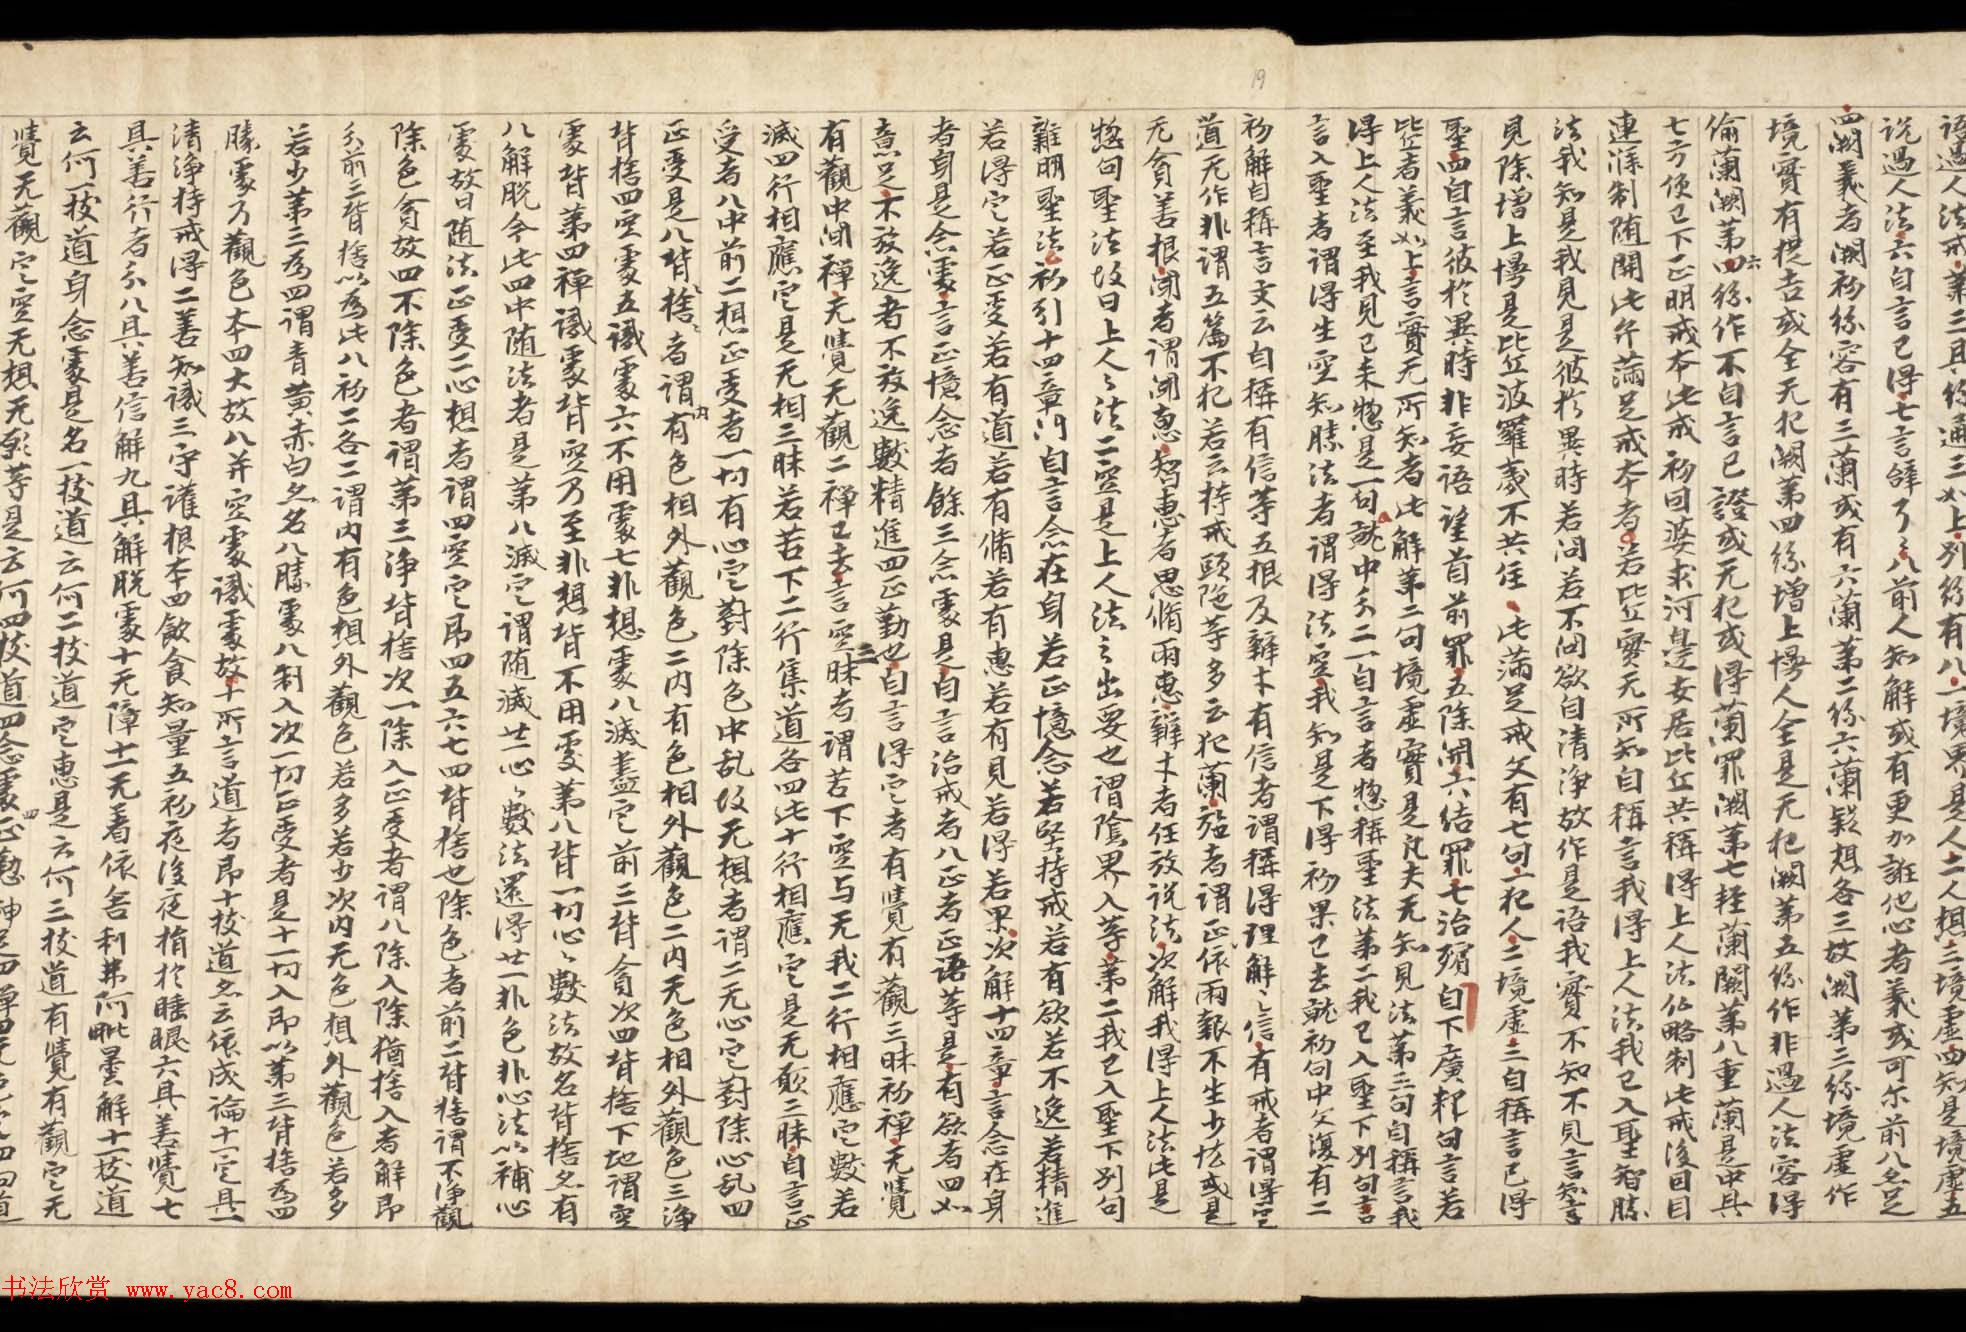 語過人法戒第三具緣通三如上別緣有八一境界是人二人想三境虛四知是境虛五
說過人法六自言己得七言辞了了八前人知解或有更加誰他心者義或可不前八名足
四闕義者闕初緣容有三蘭或有六蘭第二緣六蘭疑想各三故闕第三緣境虛作
境實有提吉或全无犯闕第四緣增上慢人全是无犯闕第五緣作非過人法容得
偷蘭闕第六緣作不自言己證或无犯或得蘭罪闕第七輕蘭闕第八重蘭是中具
七方便已下正明戒本此戒初回婆求河邊安居比丘共稱得上人法仏略制此戒後回目
連深制随開此年滿足戒本者若比丘實无所知自稱言我得上人法我已入聖智勝
法我知是我見是彼於異時若問若不問欲自清淨故作是語我實不知不見言知言
見除增上慢是比丘波羅夷不共住此滿足戒文有七句一犯人二境虛三自稱言已得
聖四自言彼於異時非妄語望首前罪五除開六結罪七治殯自下廣釋句言若
比丘者義如上言實无所知者此解第二句境虛實是凡夫无知見法第三句自稱言我
得上人法至我見已来惣是一句就中分二一自言者惣稱聖法第二我已入聖下別句言
言入聖者謂得生空知勝法者謂得法空我知是下得初果已去就初句中文復有二
初解自稱言文云自稱有信等五根及辯才有信者謂稱得理解之信有戒者謂得定
道无作非謂五篇不犯若云持戒頭陀等多云犯蘭施者謂正依兩報不生少怯或是
无貪善根聞者謂聞惠智惠者思脩兩惠辯才者任放說法次解我得上人法此是
惣句聖法故曰上人人法二空是上人法之出要也謂陰界入等第二我已入聖下別句
離明聖法初列十四章門自言念在身若正憶念若堅持戒若有欲若不逸若精進
若得定若正受若有道若有脩若有惠若有見若得若果次解十四章言念在身
者身是念處言正境念者餘三念處是自言治戒者八正者正語等是有欲者四如
意足不放逸者不放逸數精進四正勤也自言得定者有覺有觀三昧初禪无覺
有觀中間禪无覺无觀二禪已去言空三昧者謂苦下空与无我二行相應定數若
滅四行相應定是无相三昧若苦下二行集道各四此十行相應定是无願三昧自言正
受者八中前二想正受者一切有心定對除色中乱故无想者謂二无心定對除心乱四
正受是八背捨者謂內有色相外觀色二內有色相外觀色二內无色相外觀色三淨
背捨四空處五識處六不用處七非想處八滅盡定前三背貪次四背捨下地謂空
處背第四禪識處背空乃至非想背不用處第八背一切心心數法故名背捨又有
八解脫今此四中随法者是第八滅定謂随滅廿一心心數法還得廿一非色非心法以補心
處故曰随法正受二心想者謂四空定昂四五六七四背捨也除色者前二背捨謂不淨觀
除色貪故四不除色者謂第三淨背捨次一除入正受者謂八除入除猶捨入者解即
分前三背捨以為此八初二各二謂內有色相外觀色若多若少次內无色想外觀色若多
若少第三為四謂青黃赤白名八勝處八制入次一切正受者是十一切入即以第三背捨為四
勝處乃觀色本四大故八并空處識處故十所言道者即十枝道名云依成論十一定具一
清淨持戒得二善知識三守護根本四飲食知量五初夜後夜捎於睡眠六具善覺七
具善行者分八具善信解九具解脫處十无障十一无著依舍利弗阿毗曇解十一枝道
云何一枝道身念處是名一枝道云何二枝道定惠是云何三枝道有覺有觀定无
覺无觀定空无想无願等是云何四枝道四念處四正懃神足四禪四无色
19
书法欣赏 www.yac8.com